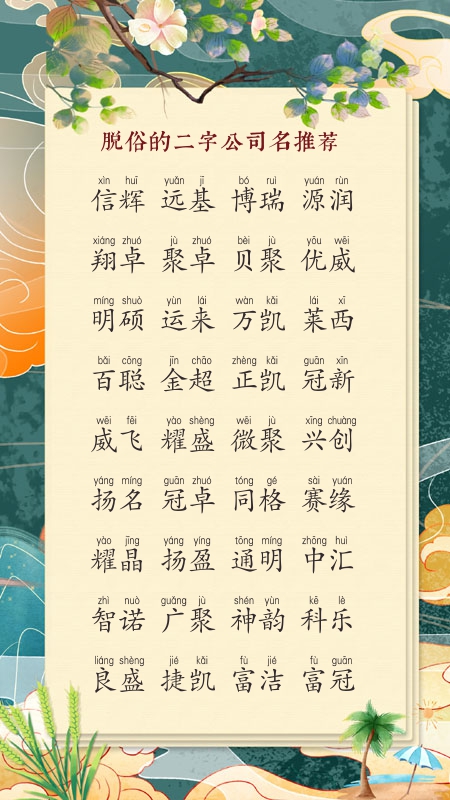 脱俗的二字公司名推荐
xìn huī yuǎn jī bó ruì yuán rùn
信辉 远基 博瑞 源润
xiáng zhuó jù zhuó bèi jù yōu wēi
翔卓 聚卓 贝聚 优威
míng shuò yùn lái wàn kǎi lái xī
明硕 运来 万凯 莱西
bǎi cōng jīn chāo zhèng kǎi guān xīn
百聪 金超 正凯 冠新
wēi fēi yào shèng wēi jù xīng chuàng
威飞 耀盛 微聚 兴创
yáng míng guān zhuó tóng gé sài yuán
扬名 冠卓 同格 赛缘
yào jīng yáng yíng tōng míng zhōng huì
耀晶 扬盈 通明 中汇
zhì nuò guǎng jù shén yùn kē lè
智诺 广聚 神韵 科乐
liáng shèng jié kǎi fù jié fù guān
良盛 捷凯 富洁 富冠